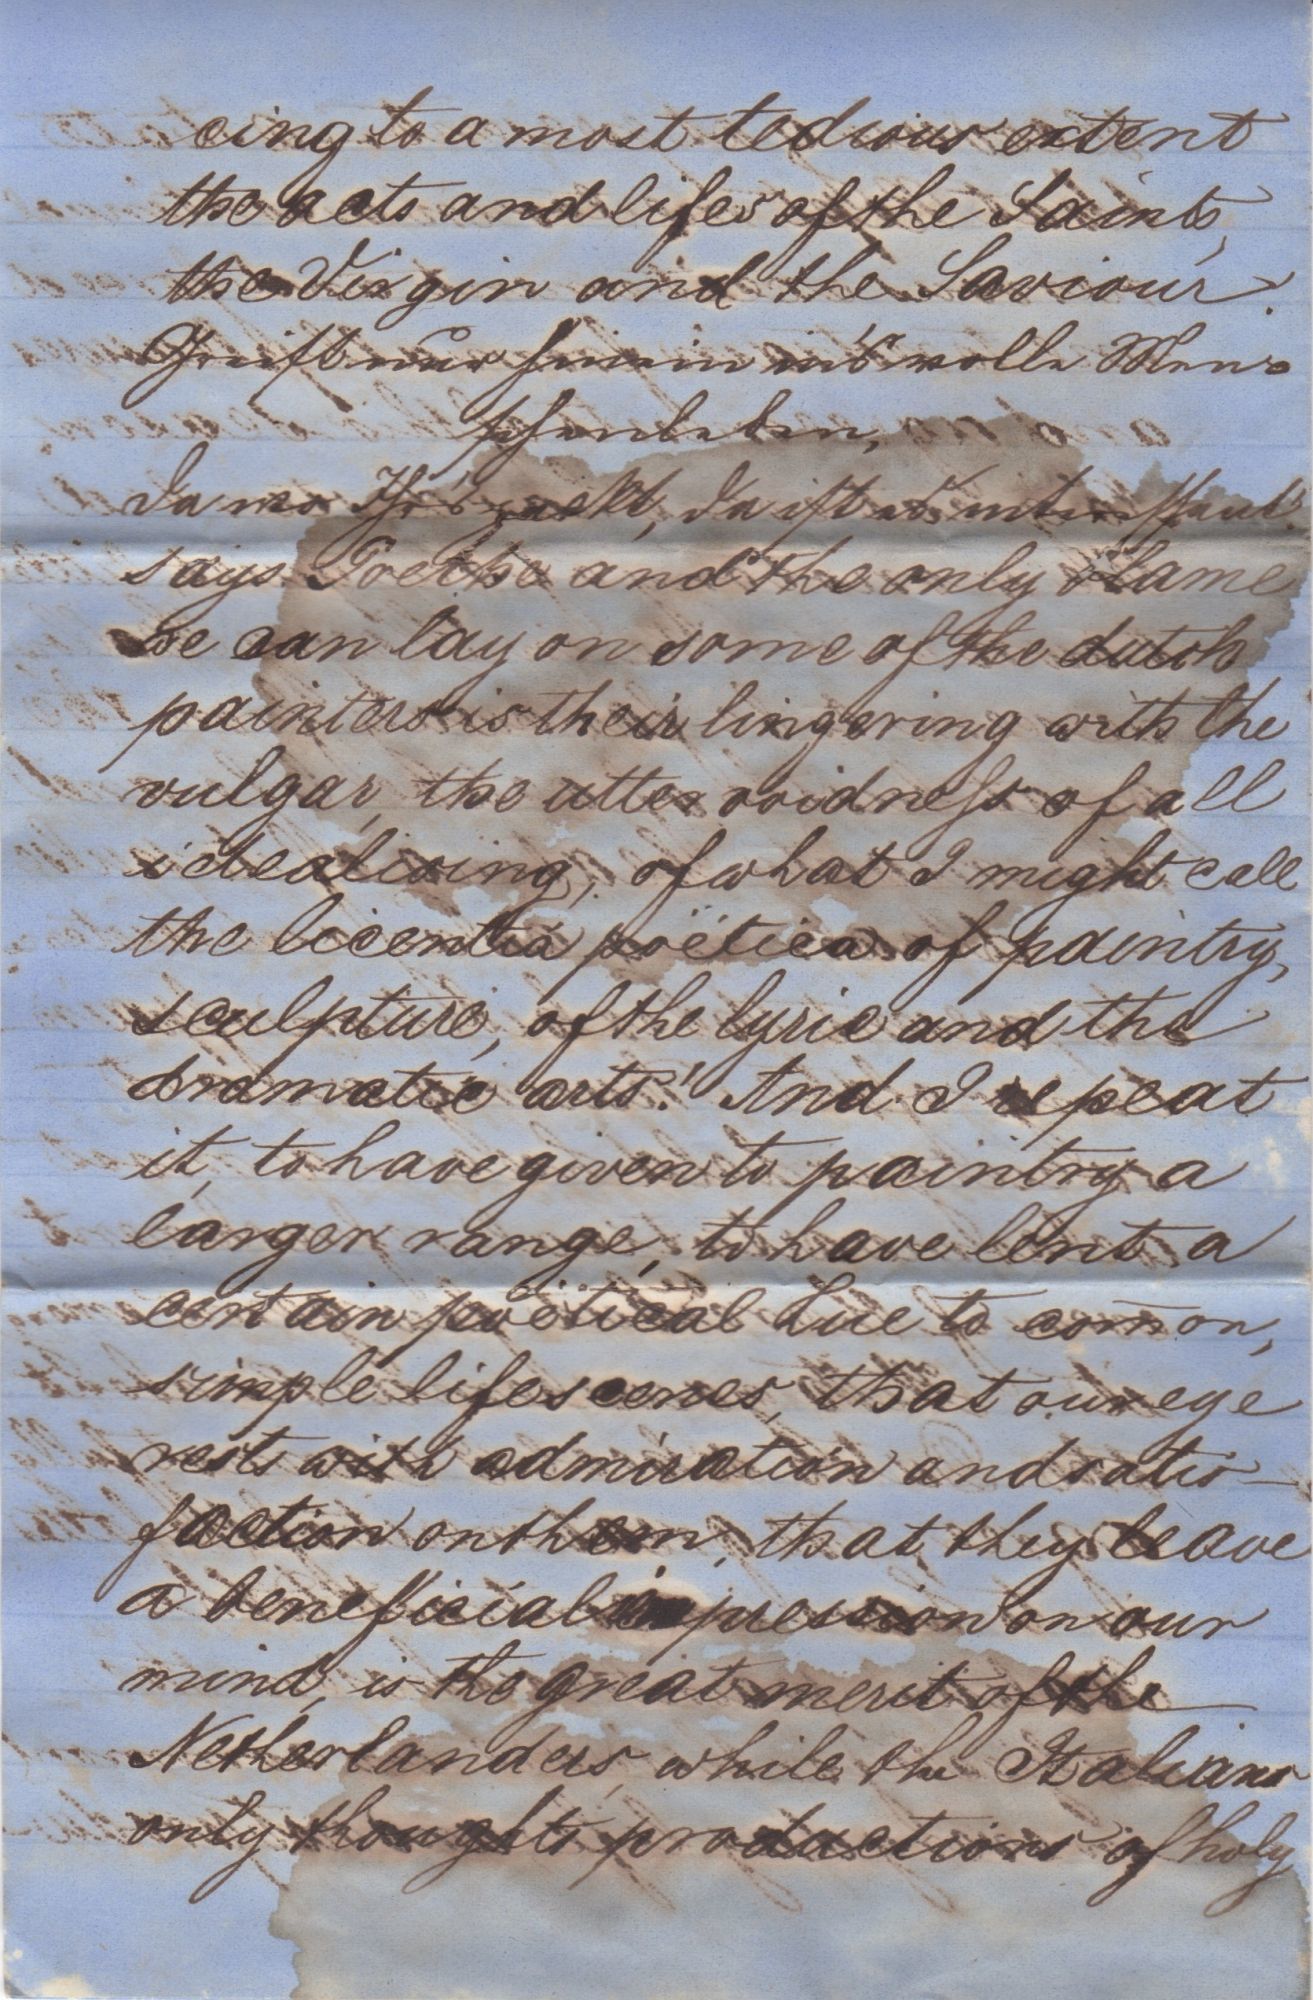 cing to a most tedious extent
the acts and lifes of the Saints,
the Virgin and the Saviour.
Greift nur hinein in's volle Men-
schenleben,
Da wo Ihr's packt, da ist es interessant!
says Goethe and the only blame
we can lay on some of the dutch
painters is their lingering with the
vulgar, the utter voidness of all
idealizing, of what I might call
the licentia poëtica of paintry,
sculpture, of the lyric and the
dramatic arts! And I repeat
it, to have given to paintry a
larger range, to have lent a
certain poëtical hue to com̄on,
simple lifescenes, that our eye
rests with admiration and satis-
faction on them, that they leave
a beneficial impression on our
mind, is the great merit of the
Netherlanders, while the Italians
only thought productions of holy